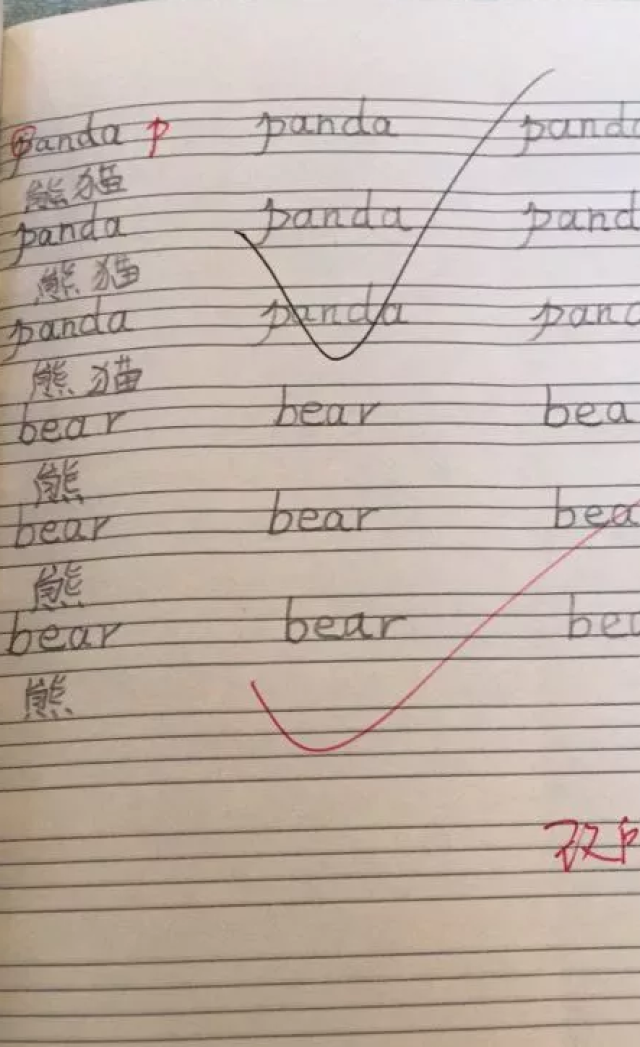 panda p panda pand
熊猫
panda panda pand
熊猫
panda panda pan
熊猫
bear bear bea
熊
bear bear bea
熊
bear bear be
熊